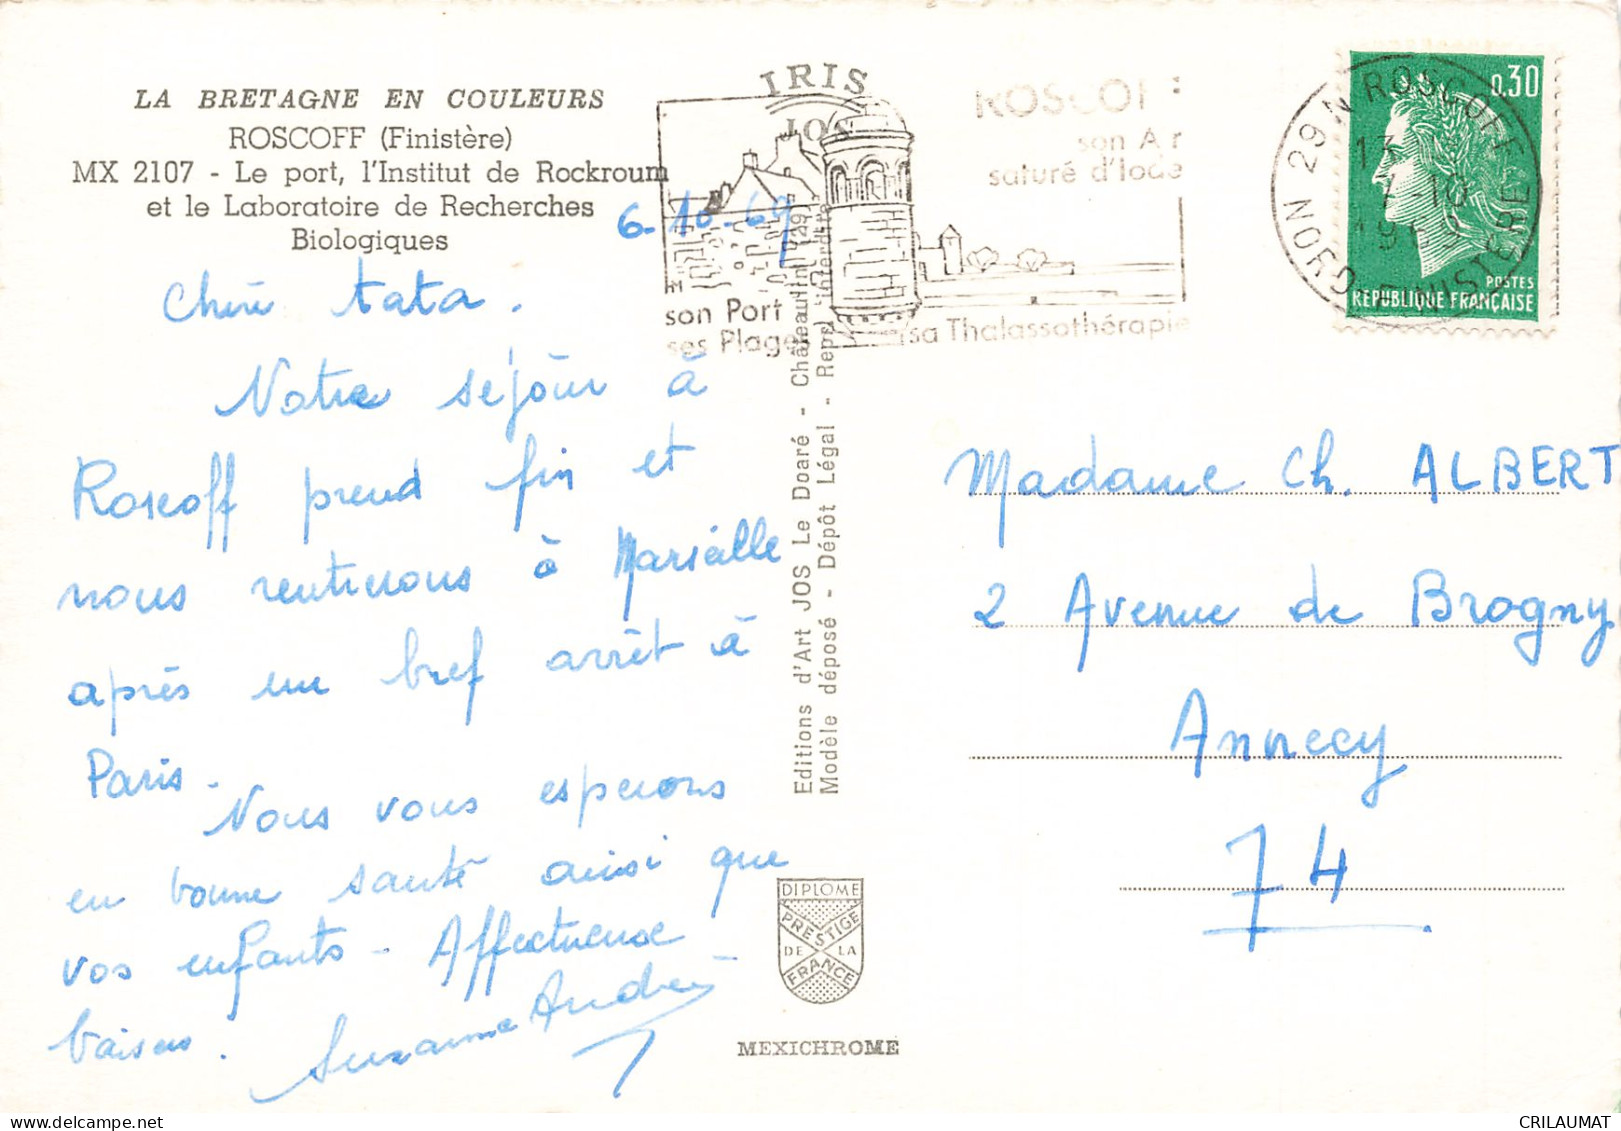 LA BRETAGNE EN COULEURS
ROSCOFF (Finistère)
MX 2107 - Le port, l'Institut de Rockroum
et le Laboratoire de Recherches
Biologiques
6-10-69
Chère tata.
Notre séjour à
Roscoff prend fin et
nous rentrerons à Marseille
après un bref arrêt à
Paris.
Nous vous esperons
en bonne santé ainsi que
vos enfants - Affectueuse
baisers.
Suzanne André
IRIS
JOS
ROSCOFF
son Air
saturé d'Iode
son Port
ses Plages
sa Thalassothérapie
Editions d'Art JOS Le Doaré - Châteaulin (29)
Modèle déposé - Dépôt Légal - Repr. interdite
DIPLOME
PRESTIGE
DE LA
FRANCE
MEXICHROME
29 N ROSCOFF
13
7-10
1969
NORD-FINISTERE
0,30
POSTES
REPUBLIQUE FRANÇAISE
Madame Ch. ALBERT
2 Avenue de Brogny
Annecy
74
CRILAUMAT